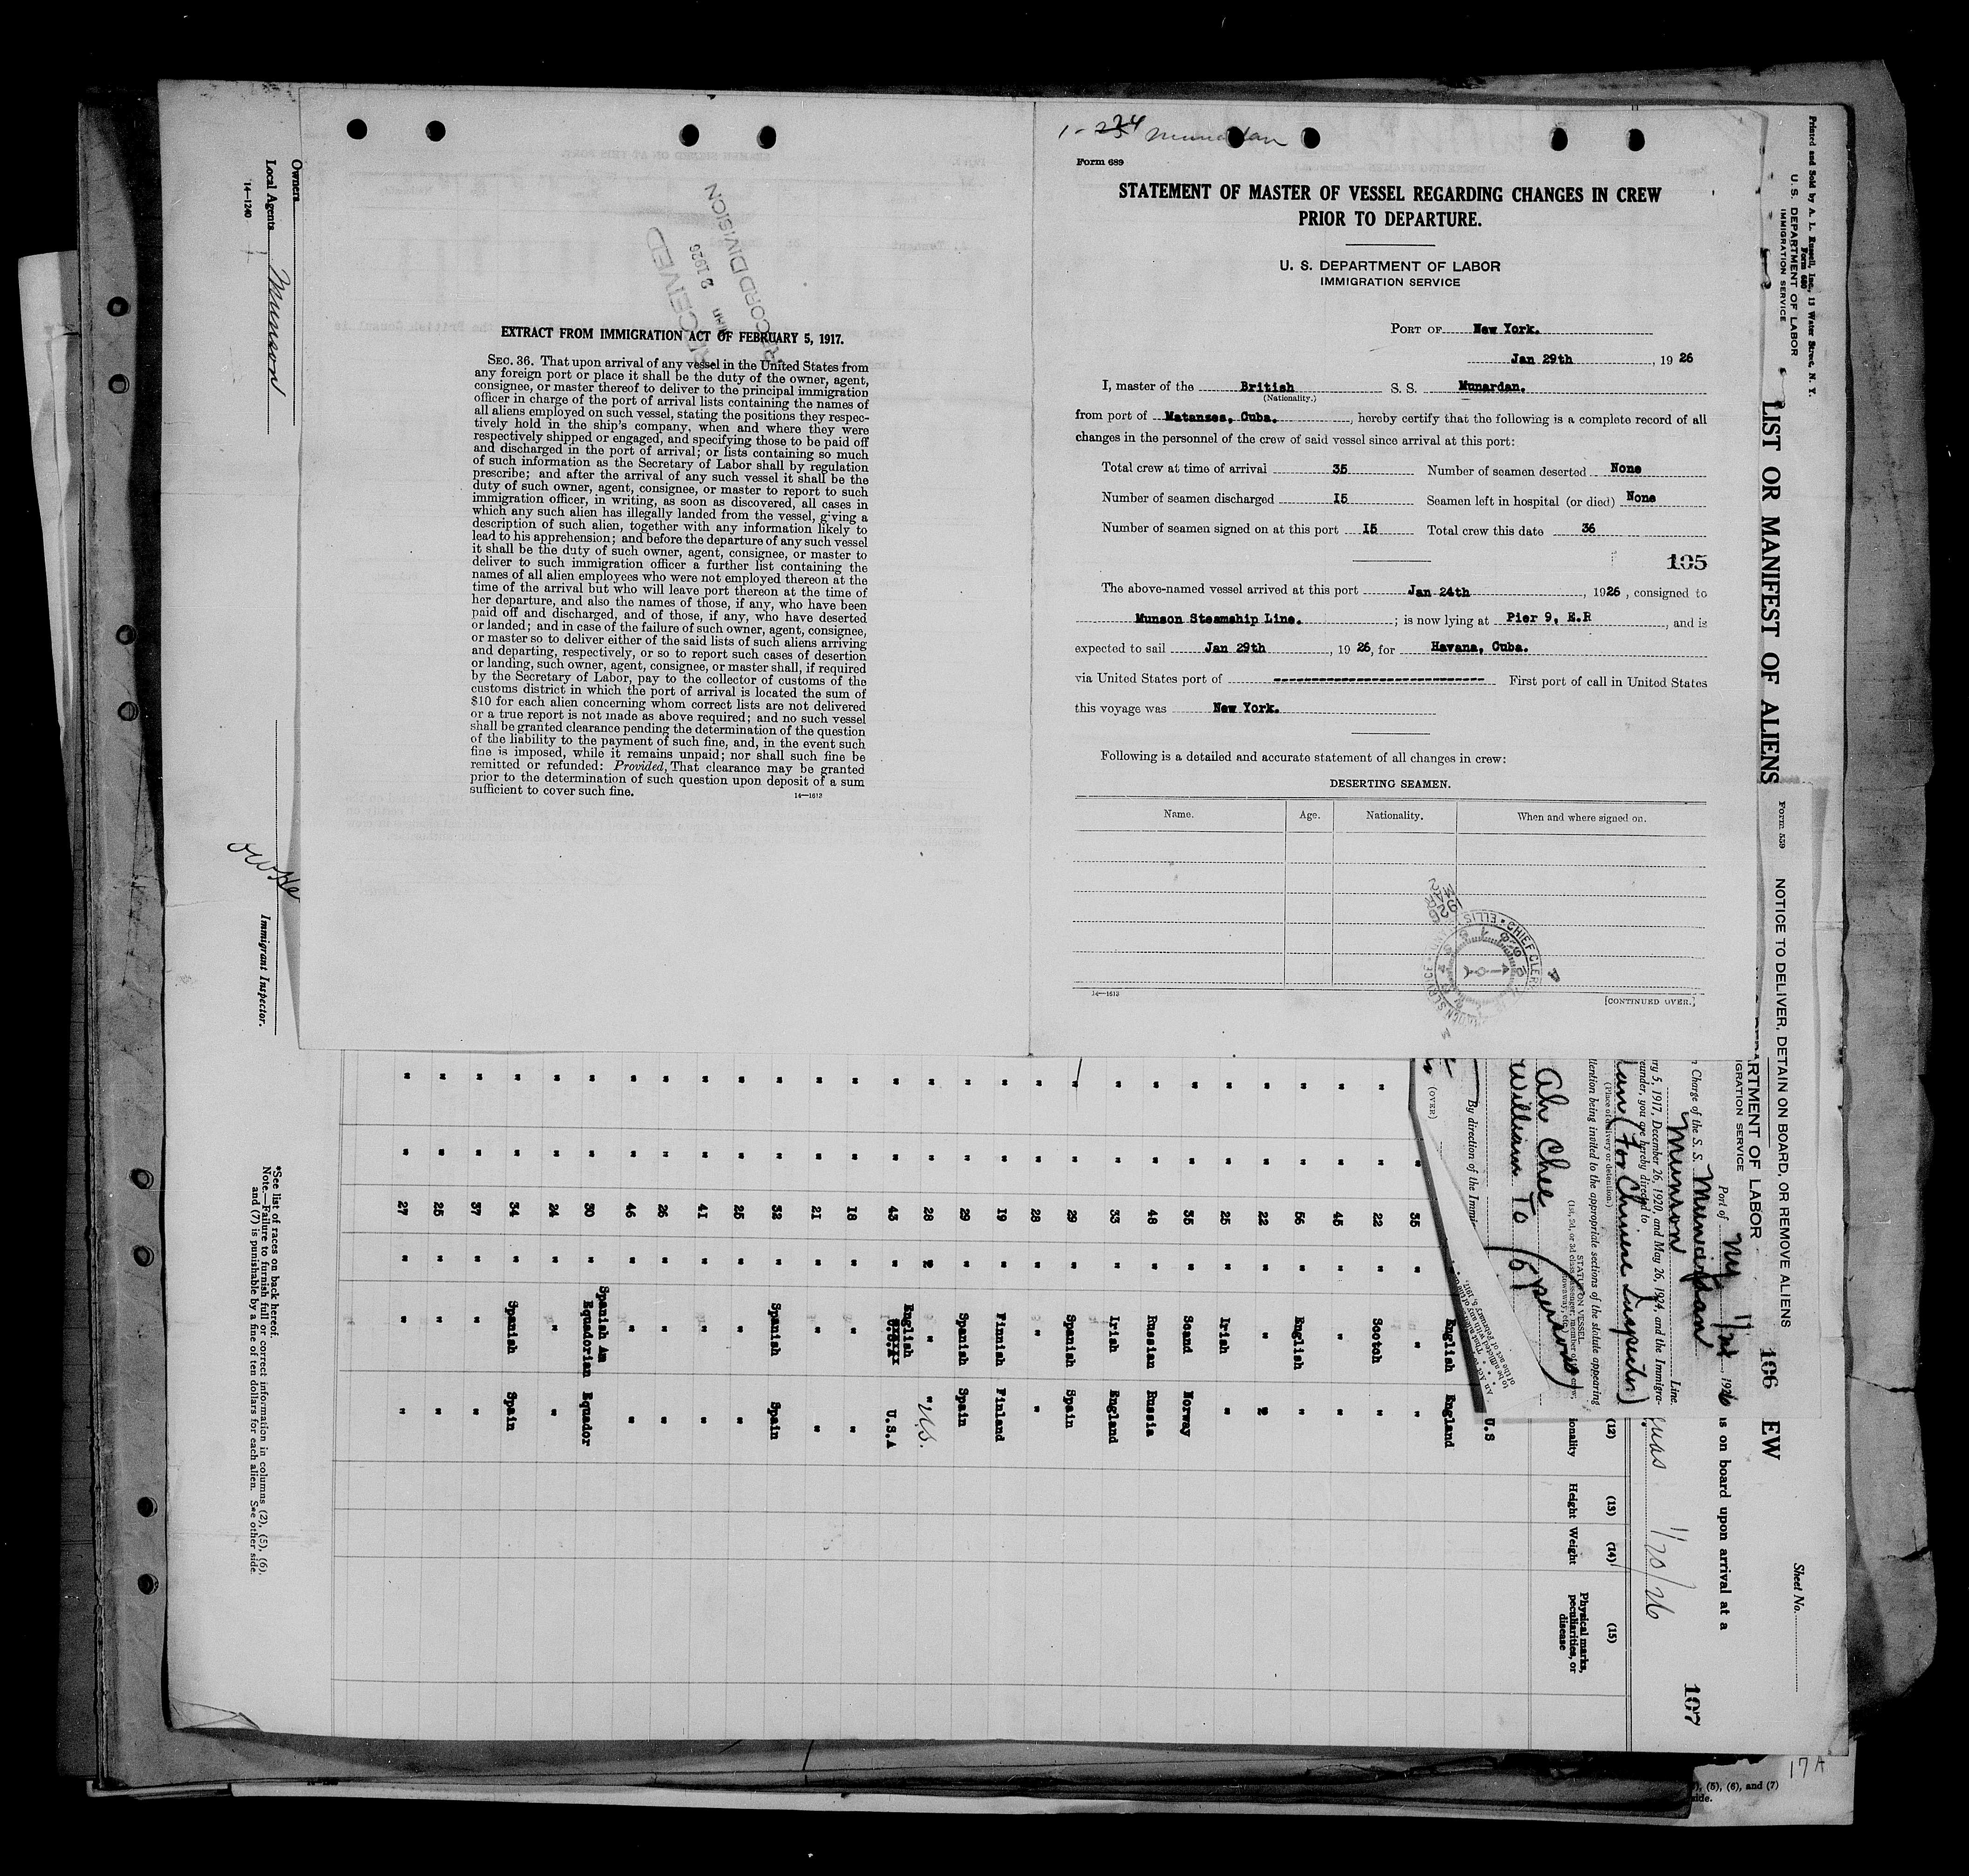 1-234 Munardan
Form 689
STATEMENT OF MASTER OF VESSEL REGARDING CHANGES IN CREW
PRIOR TO DEPARTURE.
U. S. DEPARTMENT OF LABOR
IMMIGRATION SERVICE
PORT OF New York.
Jan 29th, 1926
I, master of the British S. S. Munardan.
(Nationality.)
from port of Matanzas, Cuba., hereby certify that the following is a complete record of all
changes in the personnel of the crew of said vessel since arrival at this port:
Total crew at time of arrival 35 Number of seamen deserted None
Number of seamen discharged 15 Seamen left in hospital (or died) None
Number of seamen signed on at this port 15 Total crew this date 36
105
The above-named vessel arrived at this port Jan 24th, 1926, consigned to
Munson Steamship Line.; is now lying at Pier 9, E.R, and is
expected to sail Jan 29th, 1926, for Havana, Cuba.
via United States port of ---------------------------- First port of call in United States
this voyage was New York.
Following is a detailed and accurate statement of all changes in crew:
DESERTING SEAMEN.
Name. Age. Nationality. When and where signed on.
14—1613
[CONTINUED OVER.]
RECEIVED
2 1926
RECORD DIVISION
EXTRACT FROM IMMIGRATION ACT OF FEBRUARY 5, 1917.
SEC. 36. That upon arrival of any vessel in the United States from
any foreign port or place it shall be the duty of the owner, agent,
consignee, or master thereof to deliver to the principal immigration
officer in charge of the port of arrival lists containing the names of
all aliens employed on such vessel, stating the positions they respec-
tively hold in the ship's company, when and where they were
respectively shipped or engaged, and specifying those to be paid off
and discharged in the port of arrival; or lists containing so much
of such information as the Secretary of Labor shall by regulation
prescribe; and after the arrival of any such vessel it shall be the
duty of such owner, agent, consignee, or master to report to such
immigration officer, in writing, as soon as discovered, all cases in
which any such alien has illegally landed from the vessel, giving a
description of such alien, together with any information likely to
lead to his apprehension; and before the departure of any such vessel
it shall be the duty of such owner, agent, consignee, or master to
deliver to such immigration officer a further list containing the
names of all alien employees who were not employed thereon at the
time of the arrival but who will leave port thereon at the time of
her departure, and also the names of those, if any, who have been
paid off and discharged, and of those, if any, who have deserted
or landed; and in case of the failure of such owner, agent, consignee,
or master so to deliver either of the said lists of such aliens arriving
and departing, respectively, or so to report such cases of desertion
or landing, such owner, agent, consignee, or master shall, if required
by the Secretary of Labor, pay to the collector of customs of the
customs district in which the port of arrival is located the sum of
$10 for each alien concerning whom correct lists are not delivered
or a true report is not made as above required; and no such vessel
shall be granted clearance pending the determination of the question
of the liability to the payment of such fine, and, in the event such
fine is imposed, while it remains unpaid; nor shall such fine be
remitted or refunded: Provided, That clearance may be granted
prior to the determination of such question upon deposit of a sum
sufficient to cover such fine.
14—1613
Printed and Sold by A. L. Russell, Inc., 13 Water Street, N. Y.
Form 680
U. S. DEPARTMENT OF LABOR
IMMIGRATION SERVICE
LIST OR MANIFEST OF ALIENS
EW
Sheet No.
is on board upon arrival at a
1/20/26
107
Form 559
NOTICE TO DELIVER, DETAIN ON BOARD, OR REMOVE ALIENS
106
ARTMENT OF LABOR
IGRATION SERVICE
Port of NY 1926
Charge of the S. S. Munardan
Munson Line.
ry 5, 1917, December 26, 1920, and May 26, 1924, and the Immigra-
eunder, you are hereby directed to
(For Chinese Inspector)
(Place of delivery or detention.)
tention being invited to the appropriate sections of the statute appearing
STATUS ON VESSEL
Ah Chee
William To
(6 persons)
By direction of the Immi-
(OVER)
(12) (13) (14) (15)
ionality Height Weight Physical marks, peculiarities, or disease
U.S
" " English England
35 " " "
22 " Scotch "
45 " " "
56 " English "
22 " " "
25 " Irish "
35 " Scand Norway
48 " Russian Russia
33 " Irish England
29 " Spanish Spain
28 " " "
19 " Finnish Finland
29 " Spanish Spain
28 " " " U.S.
43 " English U.S.A
18 " " "
21 " " "
32 " Spanish Spain
25 " " "
41 " " "
26 " " "
46 " " "
30 " Spanish Am Equadorian Equador
24 " " "
34 " Spanish Spain
37 " " "
25 " " "
27 " " "
Owners
Local Agents Munson
14—1240
Immigrant Inspector.
*See list of races on back hereof.
Note.—Failure to furnish full or correct information in columns (2), (5), (6),
and (7) is punishable by a fine of ten dollars for each alien. See other side.
17A
(5), (6), and (7)
side.